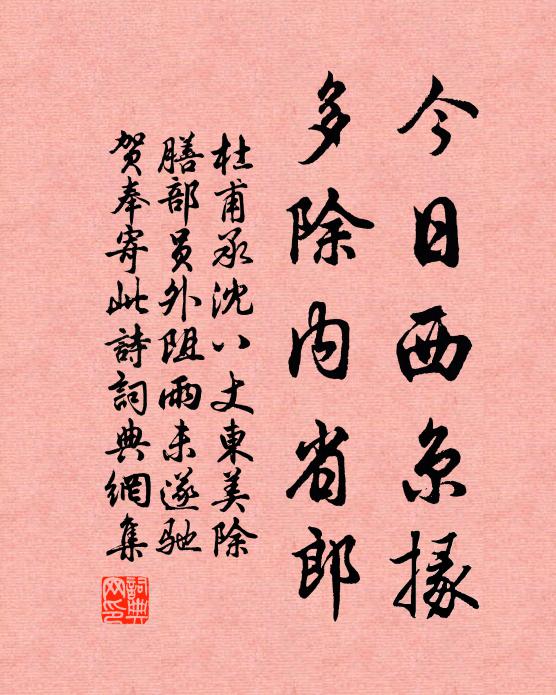 今日西京掾
多除内省郎
杜甫承沈八丈東美除
膳部员外阻雨未遂驰
贺奉寄此詩詞典網集
詞典
网印